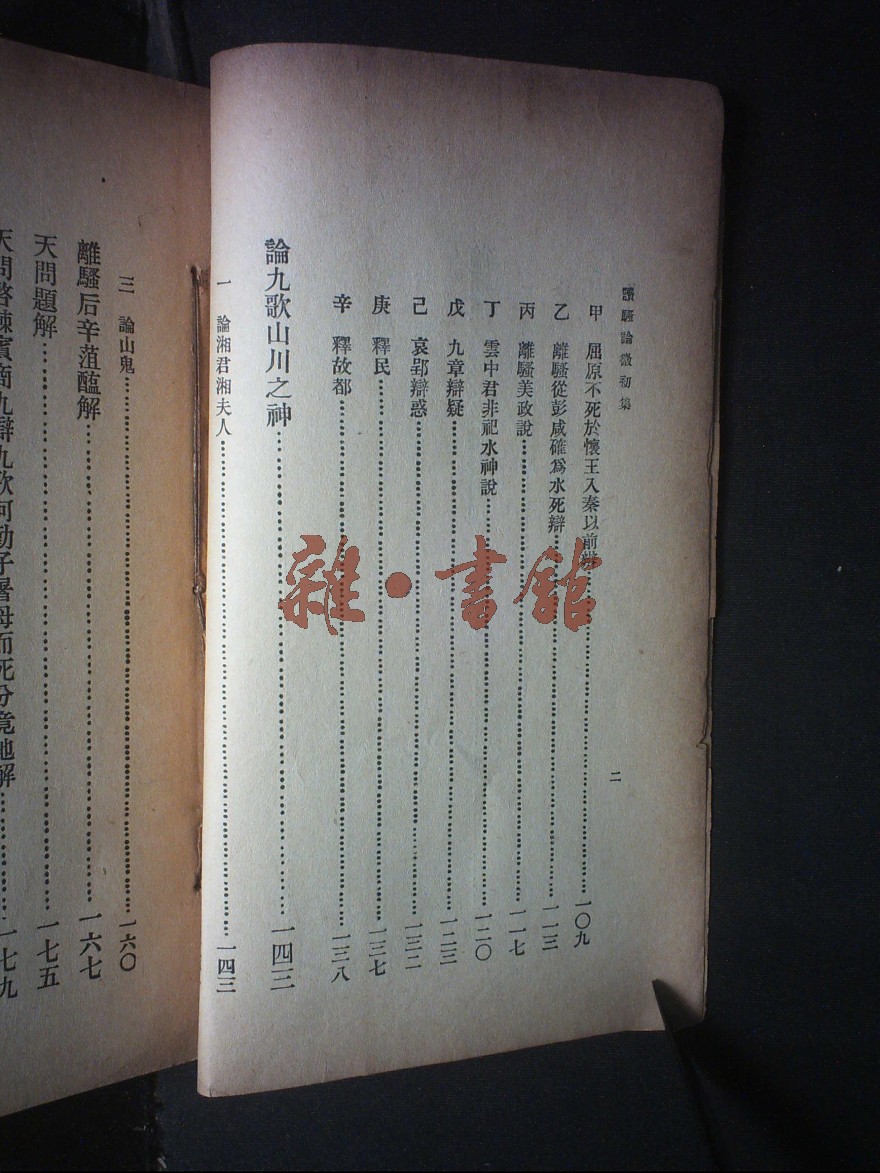 讀騷論微初集
二
甲 屈原不死於懷王入秦以前辯……一〇九
乙 離騷從彭咸確爲水死辯……一一三
丙 離騷美政說……一一七
丁 雲中君非祀水神說……一二〇
戊 九章辯疑……一二三
己 哀郢辯惑……一三二
庚 釋民……一三七
辛 釋故都……一三八
論九歌山川之神……一四三
一 論湘君湘夫人……一四三
三 論山鬼……一六〇
離騷后辛菹醢解……一六七
天問題解……一七五
天問啓棘賓商九辯九歌何勤子屠母而死分竟地解……一七九
雜·書館